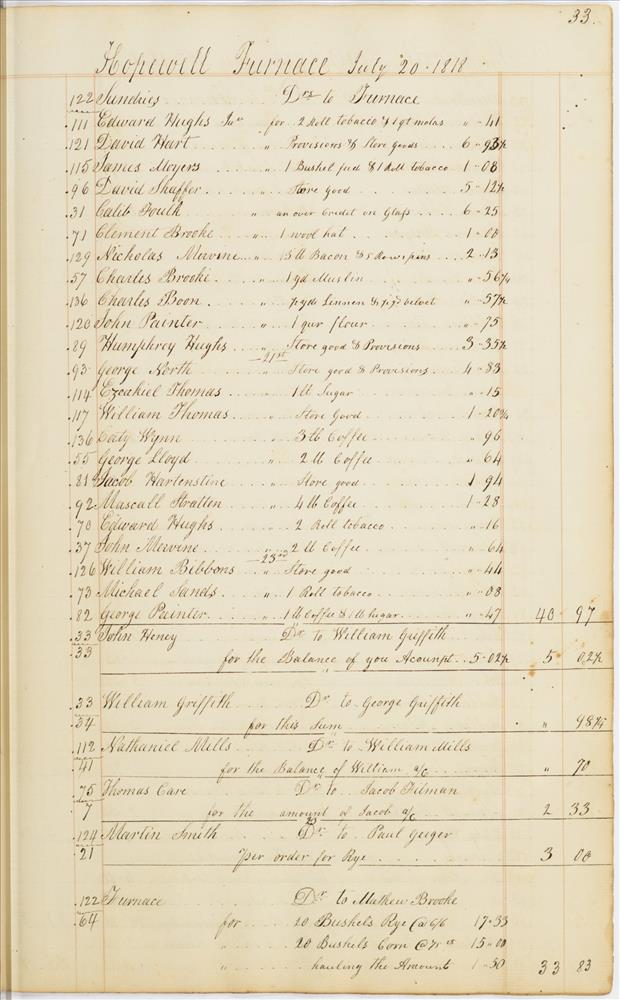 33.
Hopewell Furnace July 20 - 1818
122 Sundries Drs to Furnace
111 Edward Hughs Junr for 2 Roll tobacco & 1 qt molas " - 41
121 David Hart " Provisions & Store goods 6 - 93½
115 James Moyers " 1 Bushel feed & 1 Roll tobacco 1 - 08
96 David Shaffer " Store good 5 - 12½
31 Calib Foulk " an over Credit on Glass 6 - 25
71 Clement Brooke " 1 wool hat 1 - 00
129 Nicholas Mervine " 15 lb Bacon & 2 - 13
57 Charles Brooke " 1 yd Muslin " - 56¼
136 Charles Boon " yds Linnen & velvet " - 57½
120 John Painter " 1 qur flour " - 75
89 Humphrey Hughs " Store good & Provisions 3 - 35½
21st
93 George North " Store good & Provisions 4 - 83
114 Ezeakiel Thomas " 1 lb Sugar " - 15
117 William Thomas " Store Good 1 - 20¾
136 Caty Wynn 3 lb Coffee " 96
55 George Lloyd " 2 lb Coffee " 64
81 Jacob Hartenstine " Store good 1 94
92 Mascall Stratten " 4 lb Coffee 1 - 28
70 Edward Hughs " 2 Roll tobacco " - 16
37 John Mervine " 2 lb Coffee " - 64
23rd
126 William Bibbons " Store good " - 44
73 Michael Sands " 1 Roll tobacco " - 08
82 George Painter " 1 lb Coffee & 1 lb Sugar " - 47 40 97
33 John Heney Dr to William Griffith
33 for the Balance of you Acounpt 5 - 02½ 5 02½
33 William Griffith Dr to George Griffith
34 for this Sum " 98¾
112 Nathaniel Mills Dr to William Mills
41 for the Balance of William a/c " 70
75 Thomas Care Dr to Jacob Filman
7 for the amount of Jacob a/c 2 33
23
124 Martin Smith Dr to Paul Geiger
21 per order for Rye 3 00
122 Furnace Dr to Mathew Brooke
64 for 20 Bushels Rye @ 6/6 17 - 33
" 20 Bushels Corn @ 75 cs 15 - 00
" hauling the Amount 1 - 50 33 83